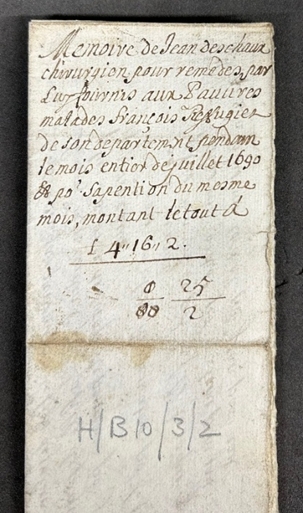 Memoire de Jean deschaux
chirurgien, pour remedes, par
Luy fournis aux Pauvres
malades François Refugiez
de son departement pendan
le mois entier de juillet 1690
& po.r sa pention du mesme
mois, montant le tout a
£ 4"16"2.
25
2
H/B10/3/2